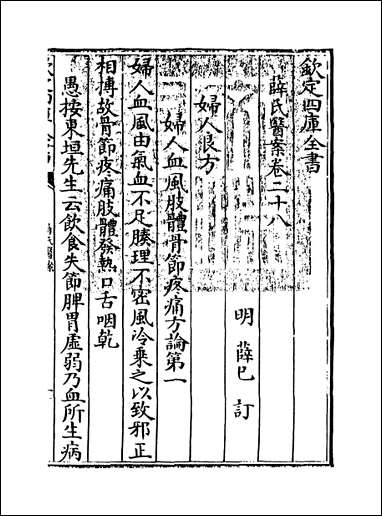 欽定四庫全書
薛氏醫案卷二十八
明 薛己 訂
婦人良方
婦人血風肢體骨節疼痛方論第一
婦人血風由氣血不足腠理不密風冷乘之以致邪正
相搏故骨節疼痛肢體發熱口舌咽乾
愚按東垣先生云飲食失節脾胃虛弱乃血所生病